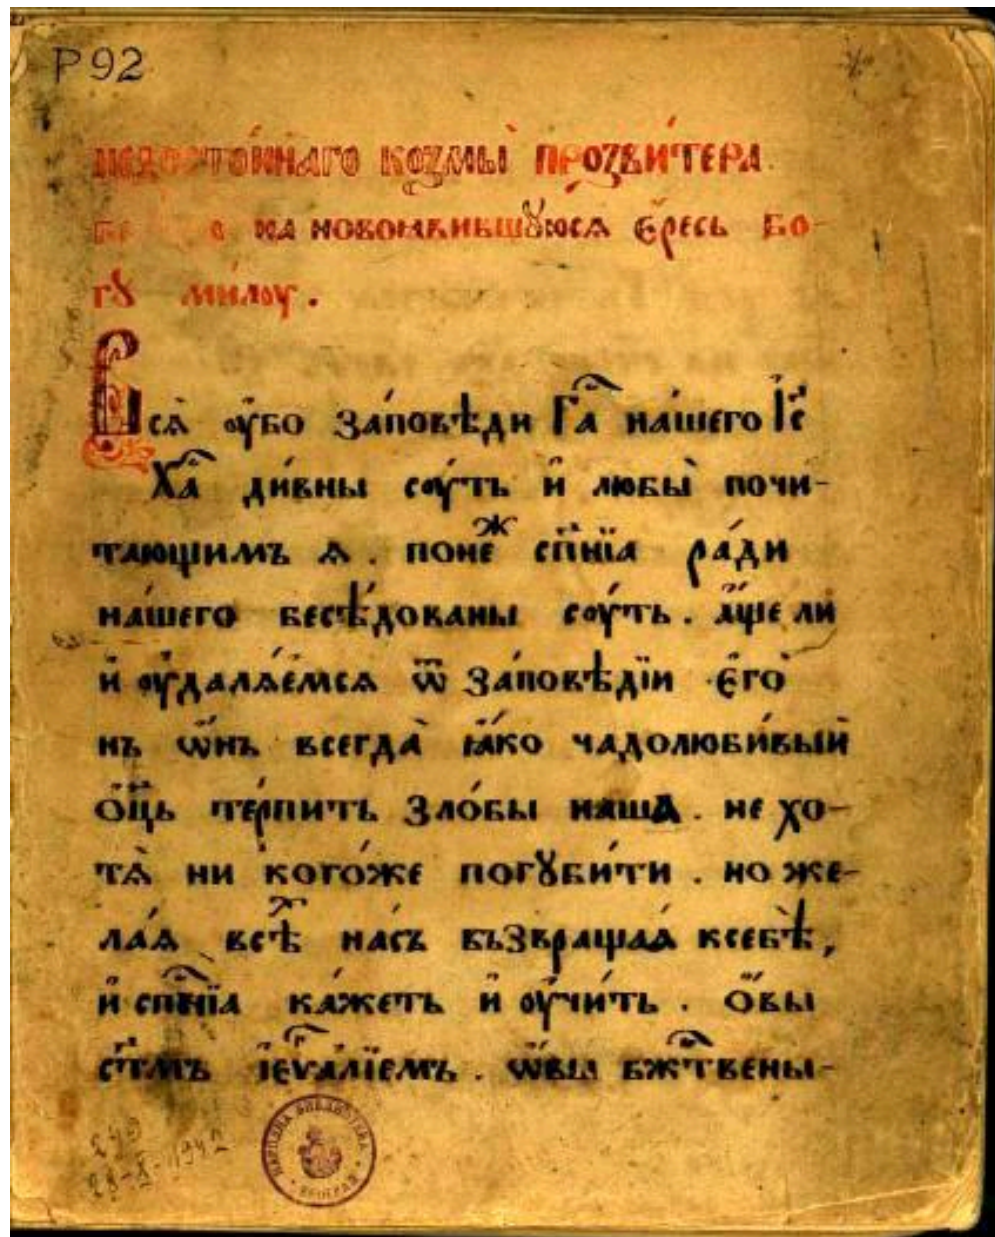 Р 92
недостойнаго козмы̀ прозви́тера
на новоꙗвившꙋюсѧ є҆́ресь бо-
гꙋ ми́лоу.
Всѧ̀ ᲂу҆́бо за́повѣди гд҃а на́шего і҆с҃
ха҃ ди́вны сꙋ́ть и҆ любы̀ почи-
тающимъ ѧ. понеⷤ сп҃нїа ра́ди
на́шего бесѣ́дованы соу́ть. а҆́ще ли
и҆ ᲂу҆далѧ́емсѧ ѿ за́повѣдїи є҆го̀
нъ ѡ҆́нъ всегда̀ ꙗ҆́ко чадолюби́вый
ѻ҆ц҃ь те́рпить ѕло́бы наша. не хо-
тѧ̀ ни кого́же погꙋби́ти. но же-
ла́ѧ всѣⷯ на́съ възвраща́ѧ ксебѣ̀,
и҆ сп҃нїа ка́жеть и҆ ᲂу҆чи́ть. ѻ҆́вы
ст҃мъ і҆еѵⷢ҇алїемъ. ѡ҆́вы бж҃твены-
28-X-1942
НАРОДНА БИБЛИОТЕКА
БЕОГРАД